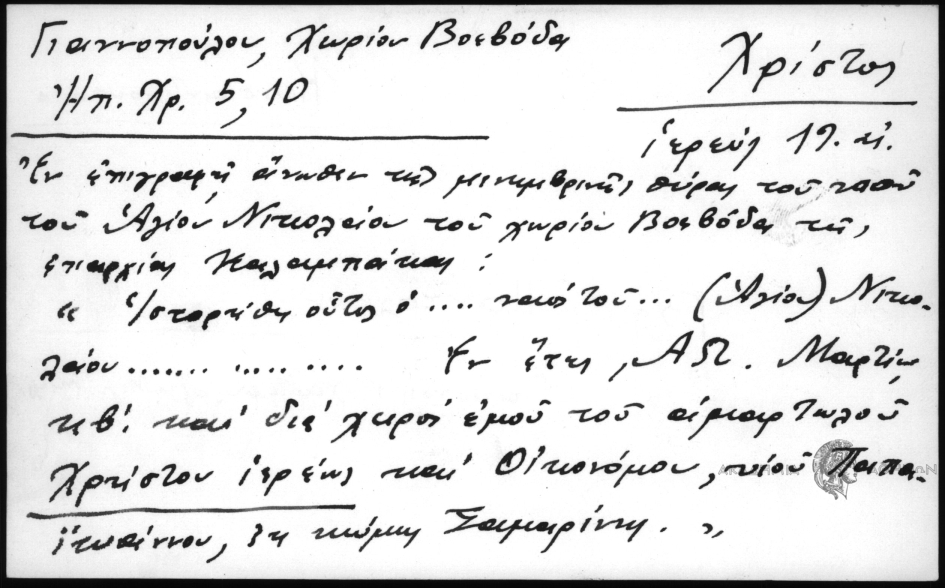 Γιαννοπούλου, Χωρίον Βοεβόδα
Ἠπ. Χρ. 5, 10
Χρίστος
ἱερεύς 19. αἰ.
Ἐν ἐπιγραφῇ ἄνωθεν τῆς μεσημβρινῆς θύρας τοῦ ναοῦ
τοῦ Ἁγίου Νικολάου τοῦ χωρίου Βοεβόδα τῆς
ἐπαρχίας Καλαμπάκας :
« Ἱστορήθη οὗτος ὁ .... ναός τοῦ ... (Ἁγίου) Νικο-
λάου ....... ..... .... Ἐν ἔτει ͵ΑΩ. Μαρτίῳ
κβ΄. καί διά χειρός ἐμοῦ τοῦ ἁμαρτωλοῦ
Χρήστου ἱερέως καί Οἰκονόμου, υἱοῦ Παπα-
ϊωάννου, ἐκ κώμης Σαμαρίνης. »